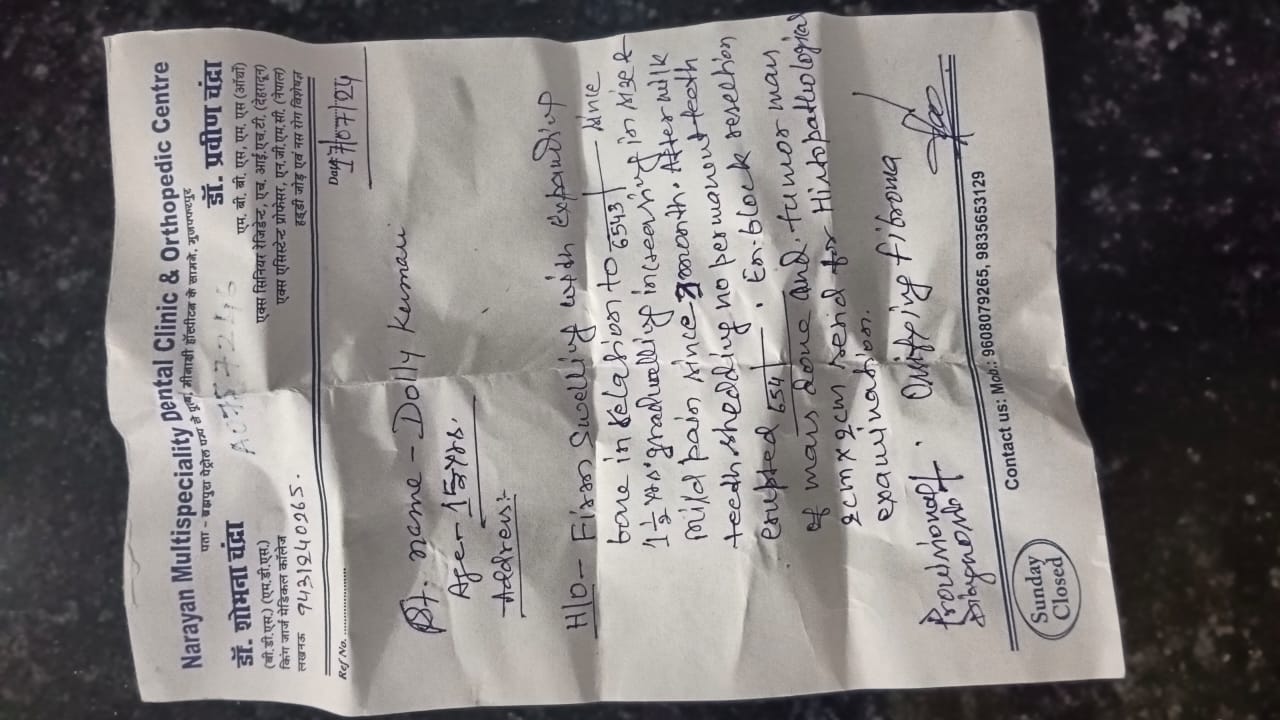 Narayan Multispeciality Dental Clinic & Orthopedic Centre
पता - ब्रह्मपुरा पेट्रोल पम्प से पूरब, मीनाक्षी हॉस्पीटल के सामने, मुजफ्फरपुर
डॉ. शोभना चंद्रा
(बी.डी.एस.) (एम.डी.एस.)
किंग जार्ज मेडिकल कॉलेज
लखनऊ 9431240265.
डॉ. प्रवीण चंद्रा
एम. बी. बी. एस, एम. एस (ऑर्थो)
एक्स सिनियर रेजिडेन्ट, एच. आई.एच.टी. (देहरादून)
एक्स एसिस्टेन्ट प्रोफेसर, एन.जी.एम.सी. (नेपाल)
हड्डी जोड़ एवं नस रोग विशेषज्ञ
Ref No. ..............
Date 17/07/24
Pt. name - Dolly Kumari
Age - 15 yrs.
Address:-
H/o - Firm Swelling with expanding
bone in relation to 6543 since
1 1/2 yrs. gradually increasing in size &
mild pain since 2 month. After milk
teeth shedding no permanent teeth
erupted 654. En-block resection
of mass done and tumor mass
2cm x 2cm send for Histopathological
examination.
Provisional Diagnosis Ossifying Fibroma
Sunday
Closed
Contact us: Mob.: 9608079265, 9835653129